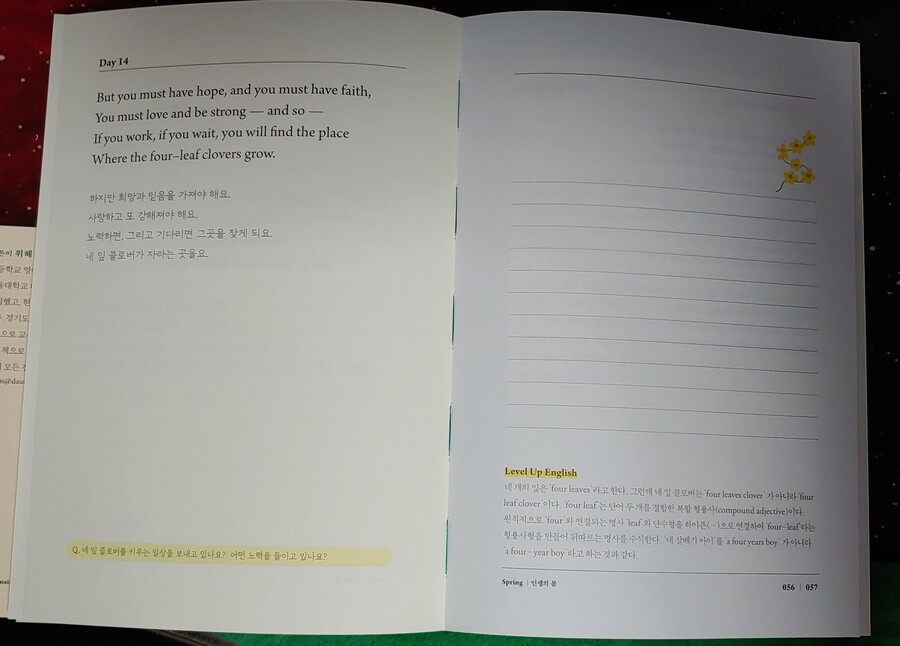 Day 14
But you must have hope, and you must have faith,
You must love and be strong — and so —
If you work, if you wait, you will find the place
Where the four–leaf clovers grow.
하지만 희망과 믿음을 가져야 해요.
사랑하고 또 강해져야 해요.
노력하면, 그리고 기다리면 그곳을 찾게 되요.
네 잎 클로버가 자라는 곳을요.
Q. 네 잎 클로버를 키우는 일상을 보내고 있나요? 어떤 노력을 들이고 있나요?
Level Up English
네 개의 잎은 'four leaves'라고 한다. 그런데 네 잎 클로버는 'four leaves clover'가 아니라 'four
leaf clover'이다. 'four leaf'는 단어 두 개를 결합한 복합 형용사(compound adjective)이다.
원칙적으로 'four'와 연결되는 명사 'leaf'의 단수형을 하이픈(–)으로 연결하여 'four–leaf'라는
형용사형을 만들어 뒤따르는 명사를 수식한다. '네 살배기 아이'를 'a four years boy'가 아니라
'a four–year boy'라고 하는 것과 같다.
Spring | 인생의 봄
056 | 057